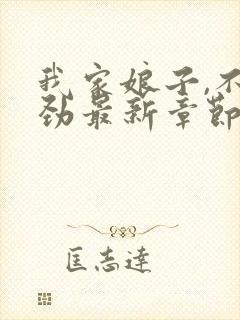 我家娘子,不
劲最新章节
匡志達